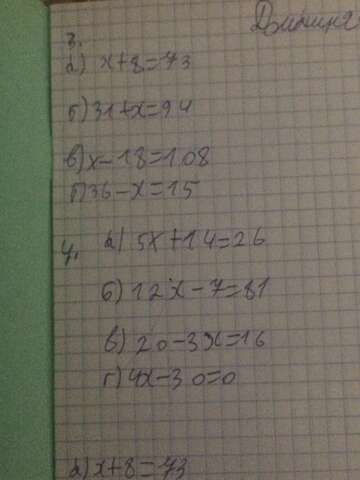 3.
а) x+8=73
б) 31+x=94
в) x-18=108
г) 36-x=15
4. а) 5x+14=26
б) 12x-7=81
в) 20-3x=16
г) 4x-30=0
а) x+8=73